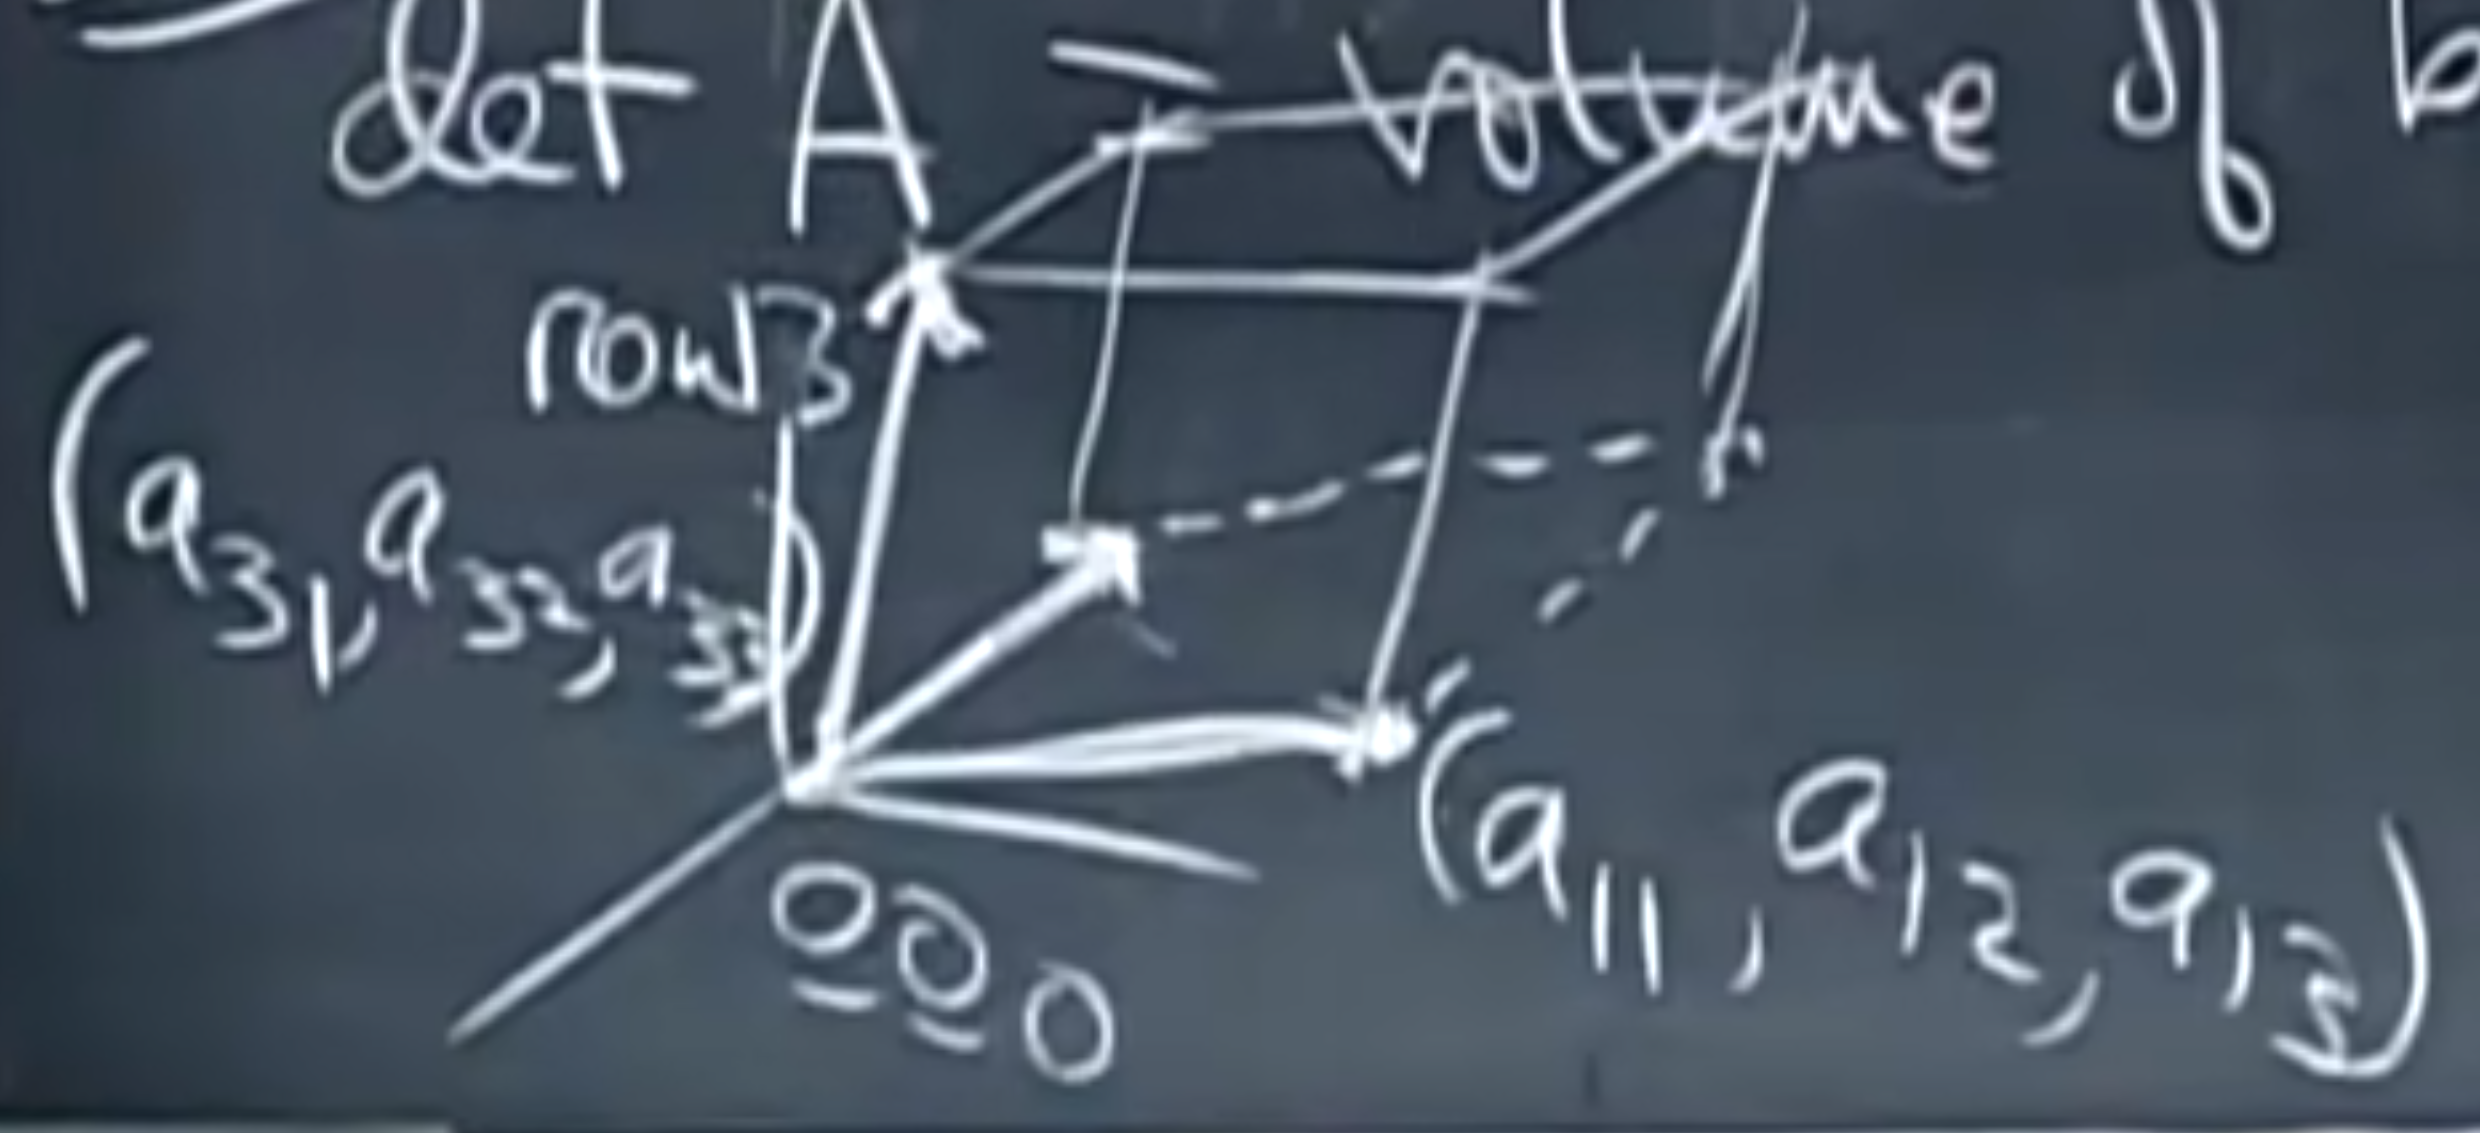 det A = volume of b
row 3
(a31, a32, a33)
(a11, a12, a13)
0 0 0